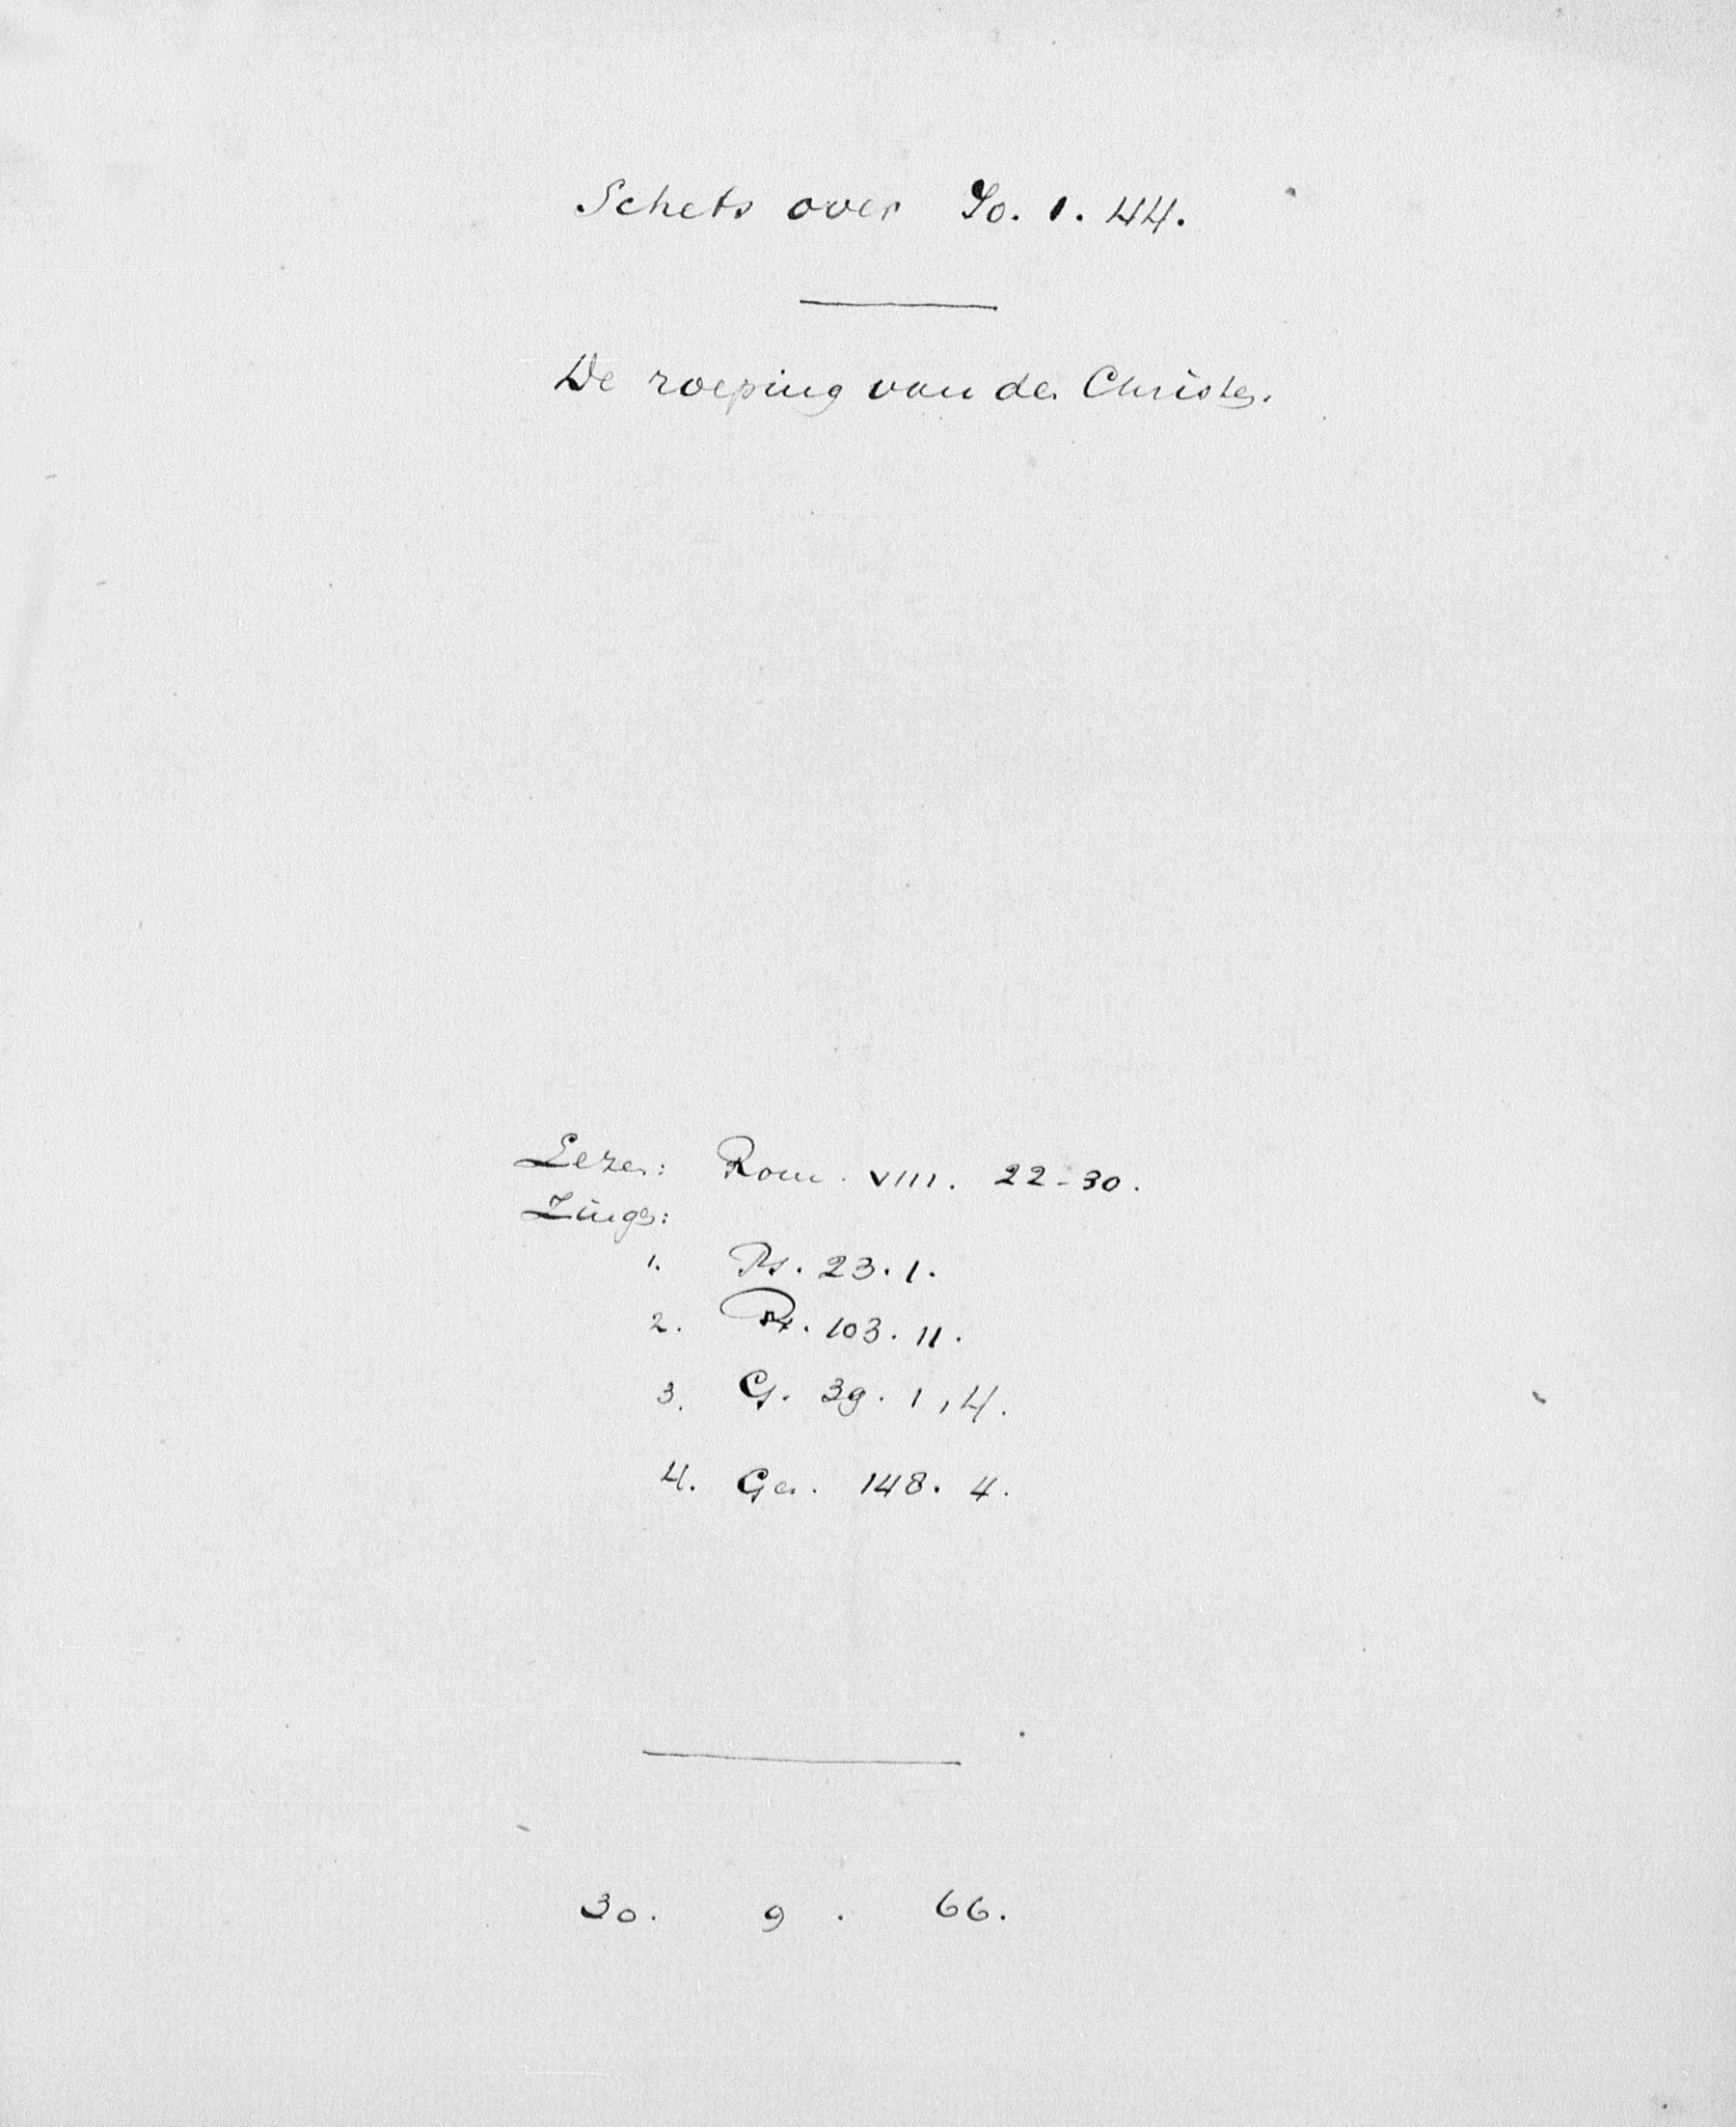 Schets over Jo. 1. 44.
De roeping van den Christen.
Lezen: Rom. VIII. 22-30.
Zingen:
1. Ps. 23. 1.
2. Ps. 103. 11.
3. G. 39. 1, 4.
4. Gez. 148. 4.
30. 9. 66.